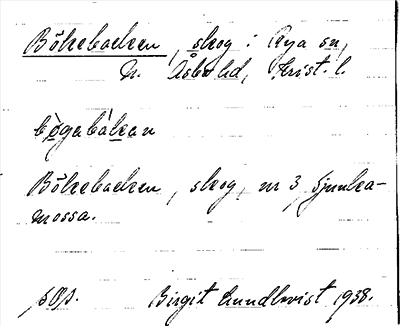 Bökebacken, skog i Rya sn,
N. Åsbo hd, Krist. l.
bø̀gabákan
Bökebacken, skog, nr 3 Sjunka-
mossa.
sOs. Birgit Lundkvist 1938.